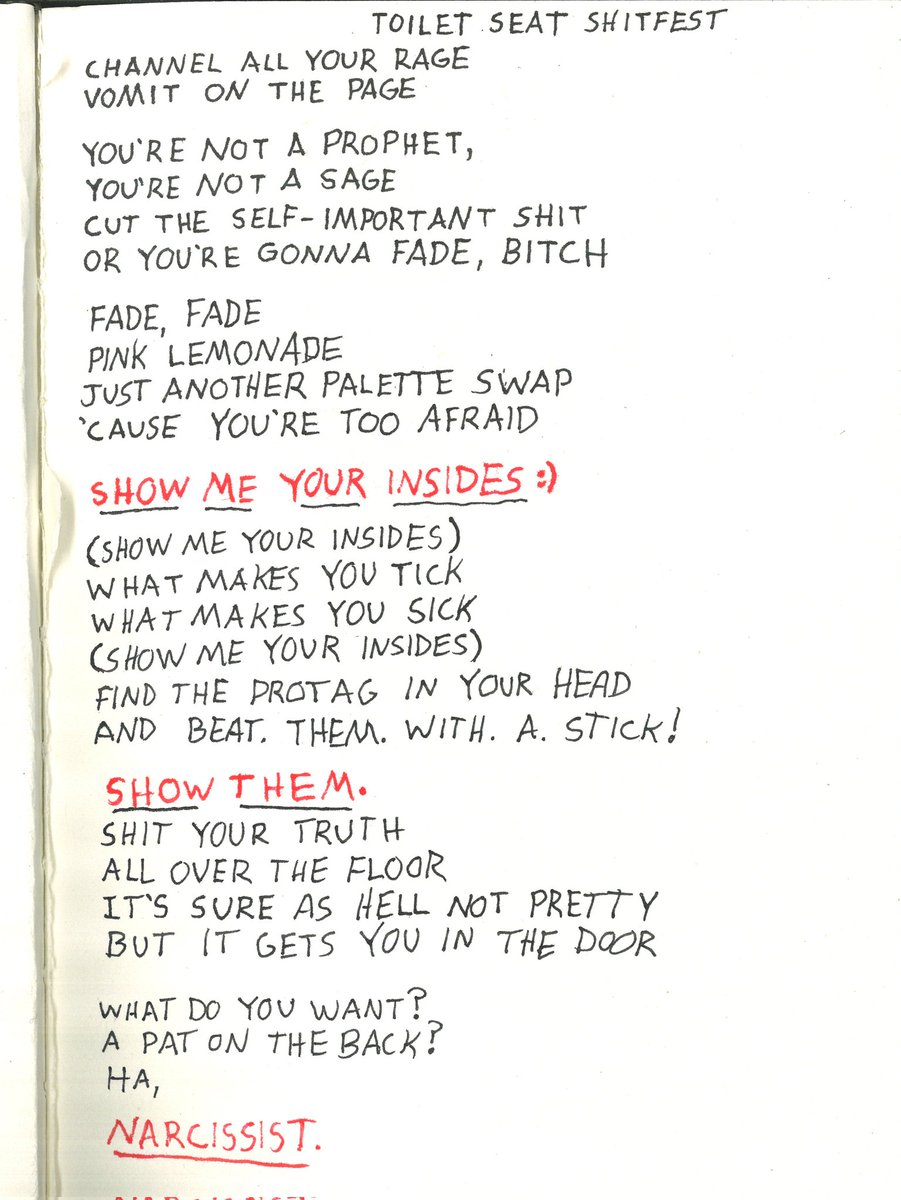 TOILET SEAT SHITFEST
CHANNEL ALL YOUR RAGE
VOMIT ON THE PAGE
YOU'RE NOT A PROPHET,
YOU'RE NOT A SAGE
CUT THE SELF-IMPORTANT SHIT
OR YOU'RE GONNA FADE, BITCH
FADE, FADE
PINK LEMONADE
JUST ANOTHER PALETTE SWAP
'CAUSE YOU'RE TOO AFRAID
SHOW ME YOUR INSIDES :)
(SHOW ME YOUR INSIDES)
WHAT MAKES YOU TICK
WHAT MAKES YOU SICK
(SHOW ME YOUR INSIDES)
FIND THE PROTAG IN YOUR HEAD
AND BEAT. THEM. WITH. A. STICK!
SHOW THEM.
SHIT YOUR TRUTH
ALL OVER THE FLOOR
IT'S SURE AS HELL NOT PRETTY
BUT IT GETS YOU IN THE DOOR
WHAT DO YOU WANT?
A PAT ON THE BACK?
HA,
NARCISSIST.